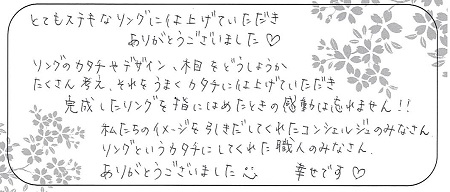 とてもステキなリングに仕上げていただき
ありがとうございました♡
リングのカタチやデザイン、木目をどうしようか
たくさん考え、それをうまくカタチに仕上げていただき
完成したリングを指にはめたときの感動は忘れません!!
私たちのイメージを引きだしてくれたコンシェルジュのみなさん
リングというカタチにしてくれた職人のみなさん、
ありがとうございました 幸せです♡